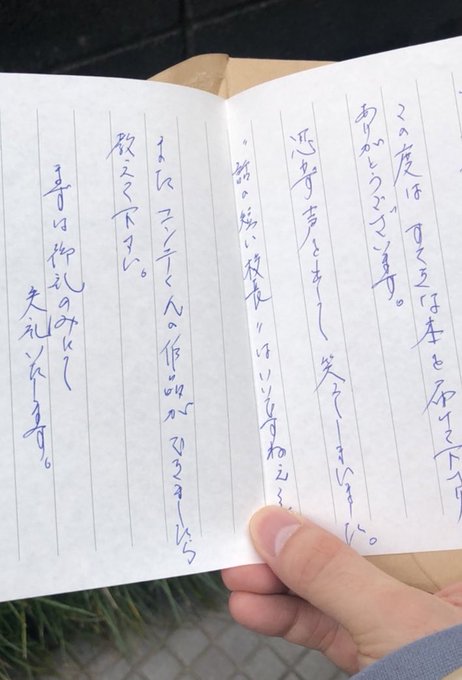 この度は すてきな本を届けて下さり
ありがとうございます。
思わず声を出して 笑ってしまいました。
"話の短い校長"はいいですねえ
また コンテくんの作品が できましたら
教えて下さい。
まずは御礼のみにて
失礼いたします。